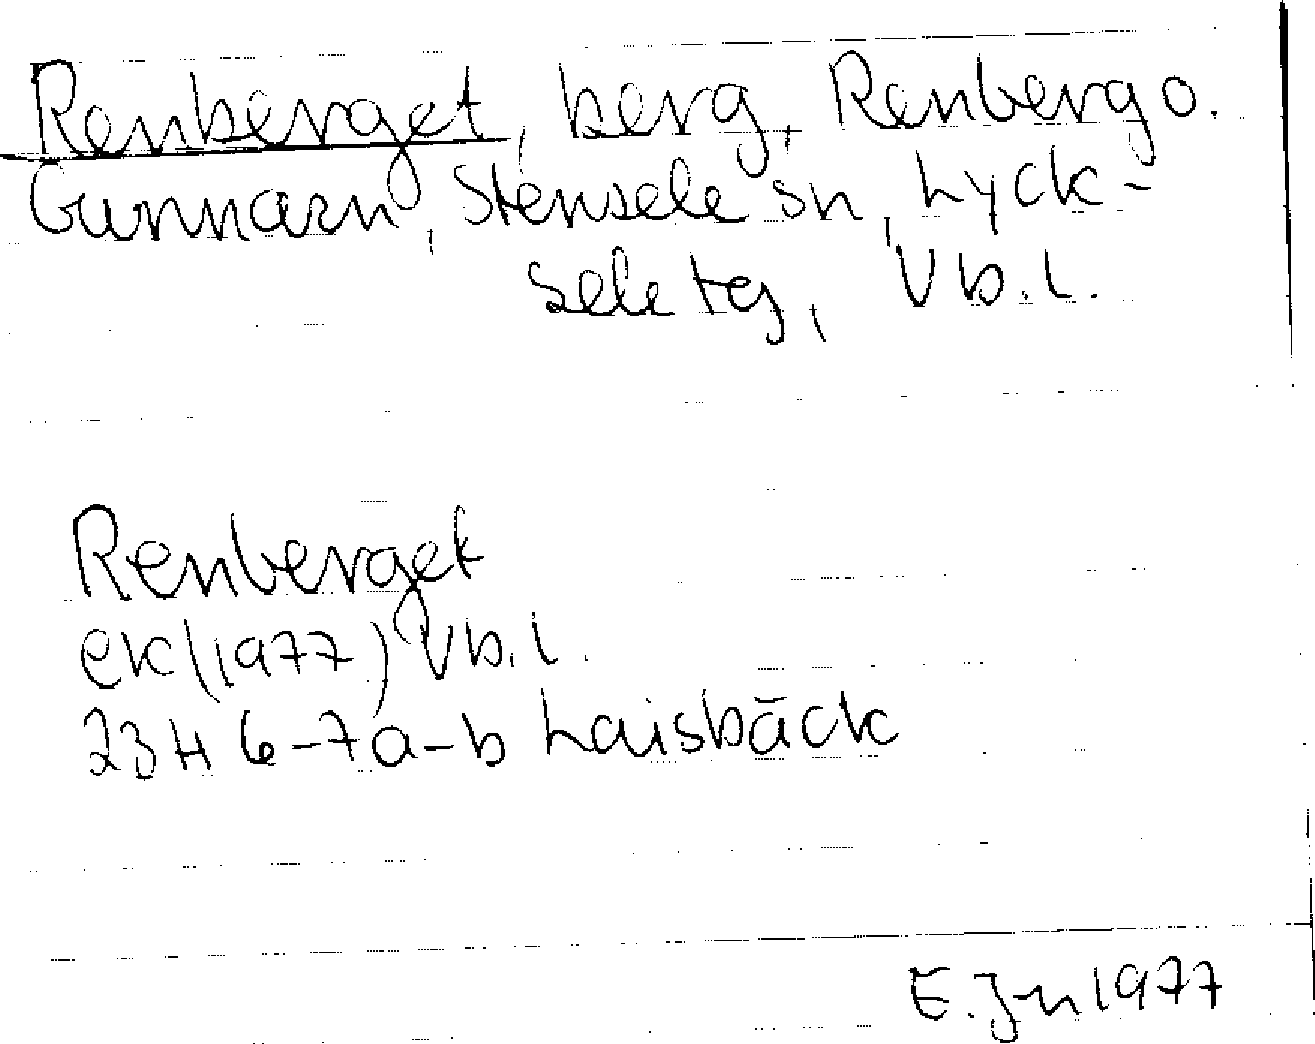 Renberget, berg, Renberg o.
Gunnarn, Stensele sn, Lyck-
sele tg, Vb.l.
Renberget
ek(1977) Vb.l.
23H 6-7a-b Laisbäck
E. Jn 1977